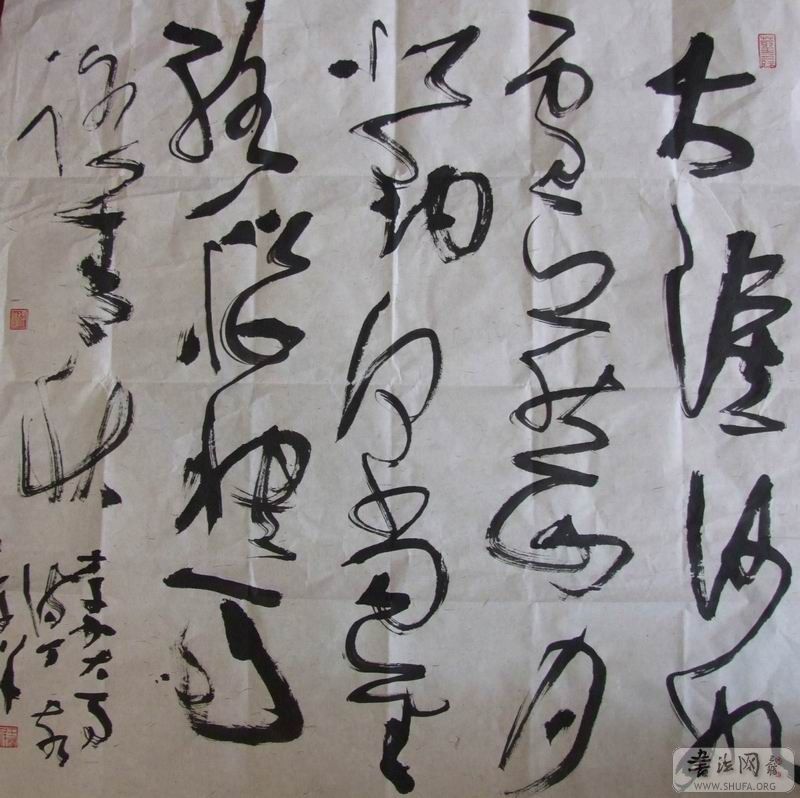 大漠沙如
雪燕山月
似钩何当金
络脑快走
踏清秋
書法网
WWW.SHUFA.ORG